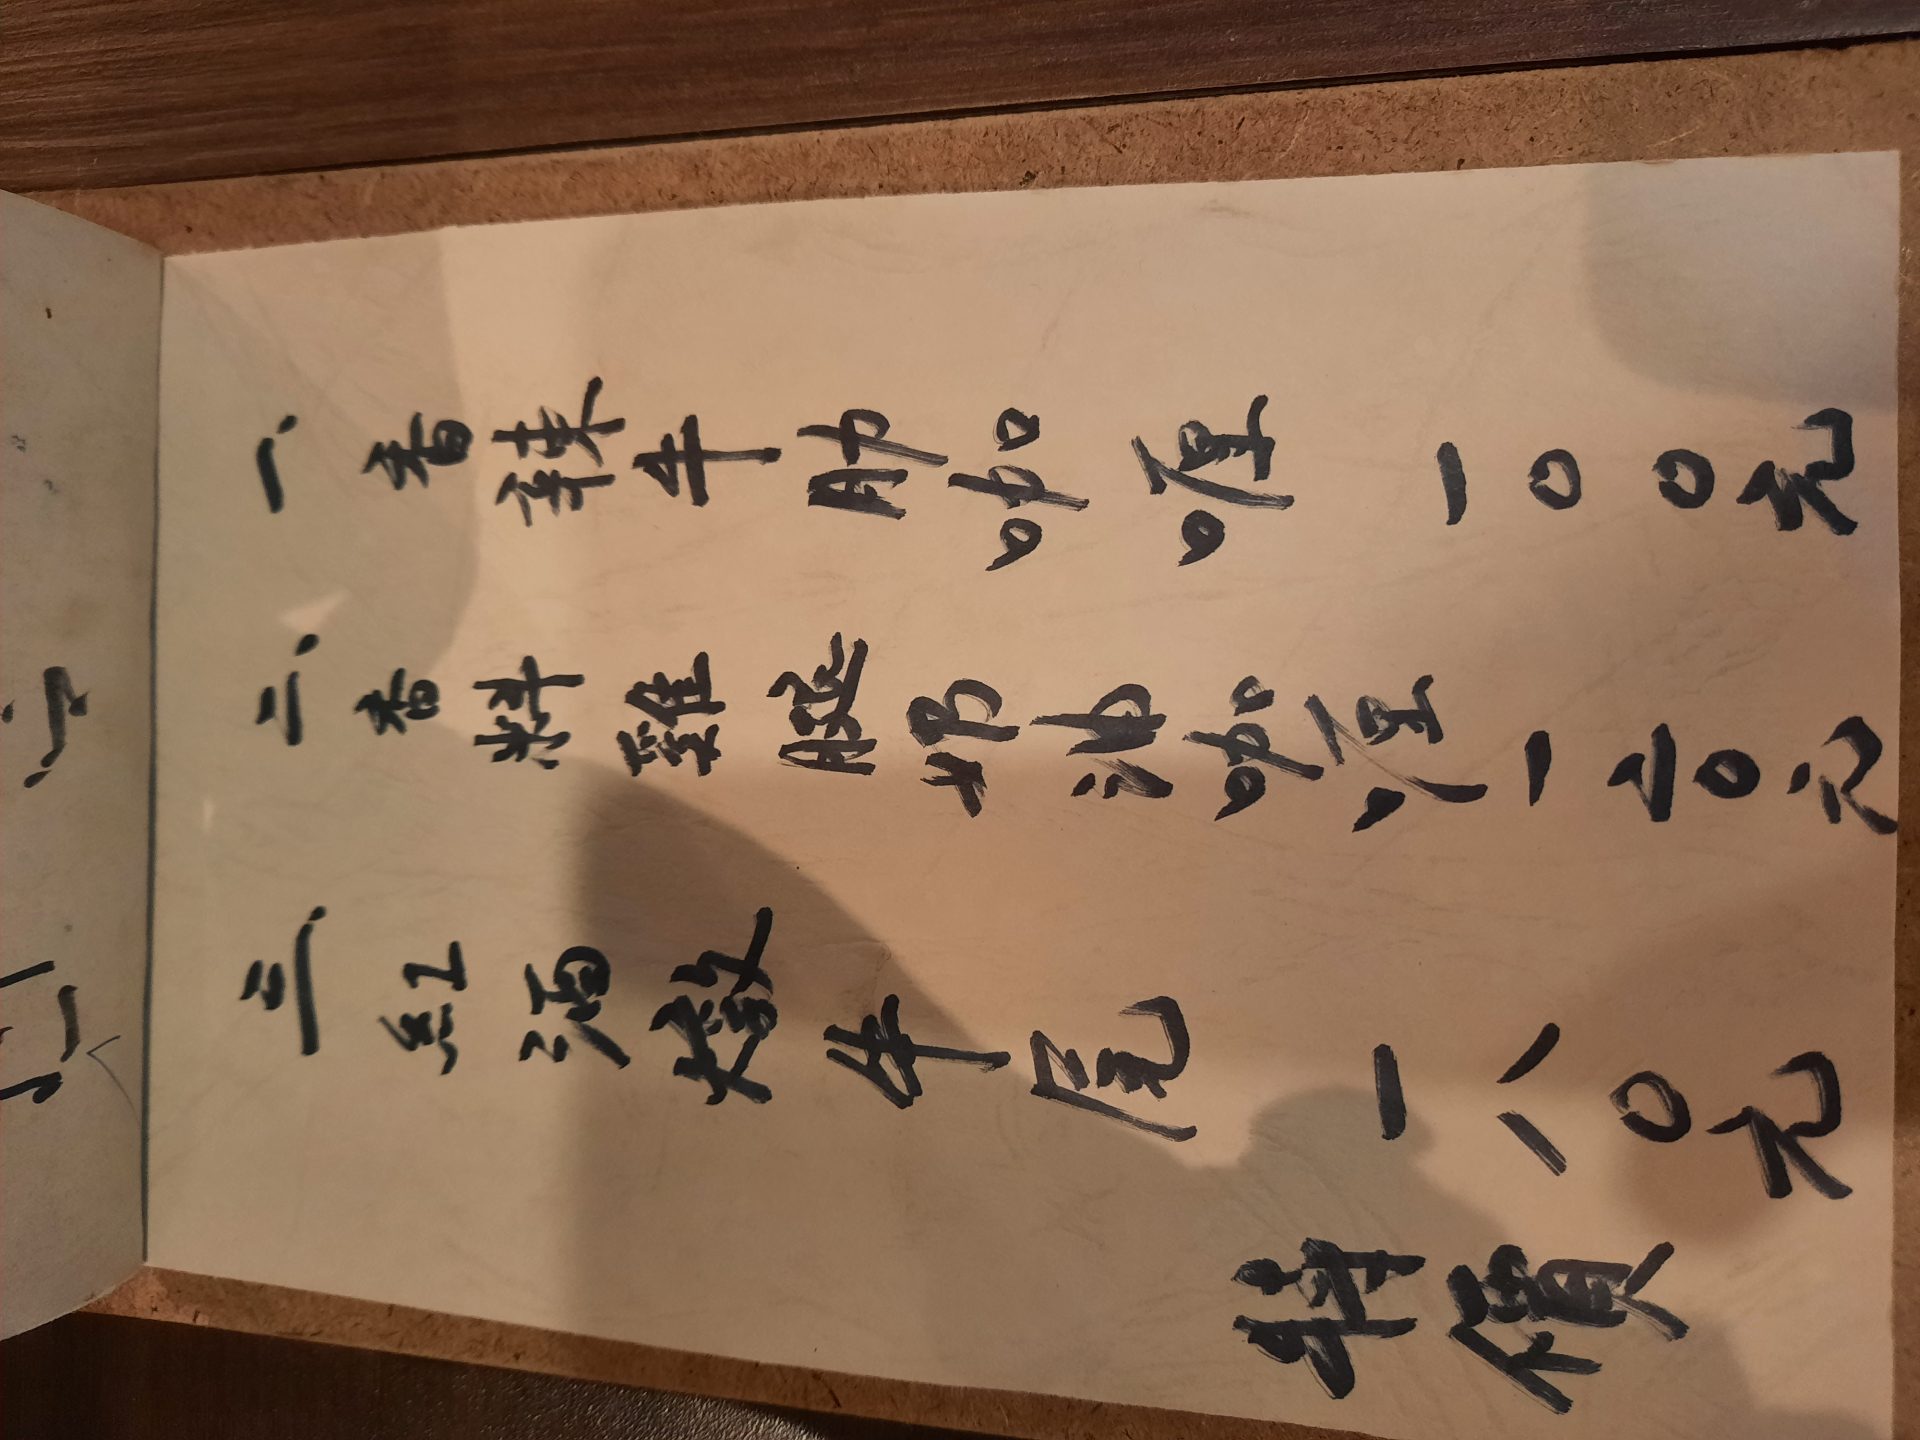 一、香辣牛肋咖喱 一〇〇元
二、香料雞腿奶油咖喱一二〇元
三、紅酒燉牛尾 一八〇元
特價